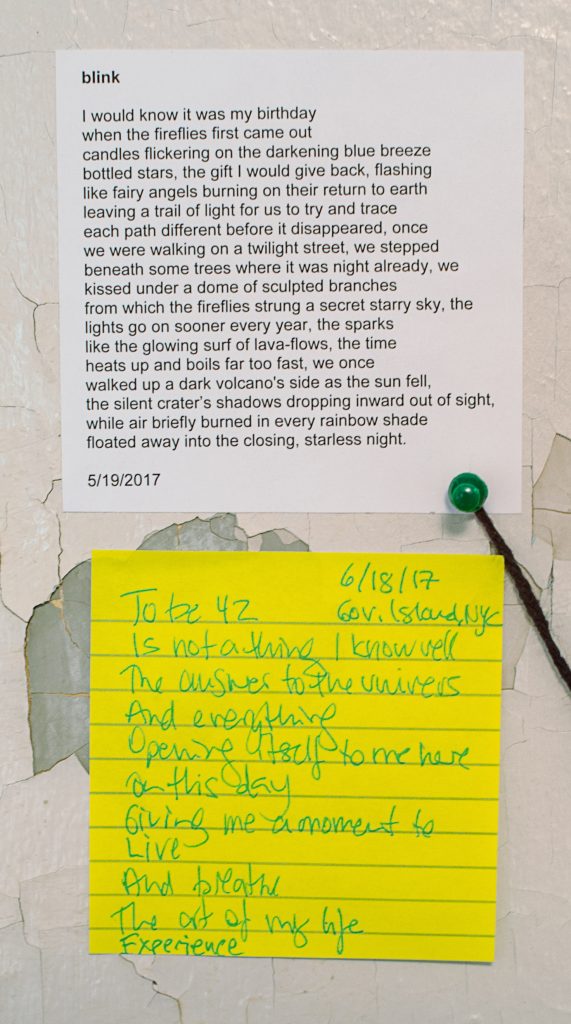 blink
I would know it was my birthday
when the fireflies first came out
candles flickering on the darkening blue breeze
bottled stars, the gift I would give back, flashing
like fairy angels burning on their return to earth
leaving a trail of light for us to try and trace
each path different before it disappeared, once
we were walking on a twilight street, we stepped
beneath some trees where it was night already, we
kissed under a dome of sculpted branches
from which the fireflies strung a secret starry sky, the
lights go on sooner every year, the sparks
like the glowing surf of lava-flows, the time
heats up and boils far too fast, we once
walked up a dark volcano's side as the sun fell,
the silent crater's shadows dropping inward out of sight,
while air briefly burned in every rainbow shade
floated away into the closing, starless night.
5/19/2017
6/18/17
Gov. Island, NYC
To be 42
Is not a thing I know well
The answer to the univers
And everything
Opening itself to me here
on this day
Giving me a moment to
Live
And breathe
The art of my life
Experience